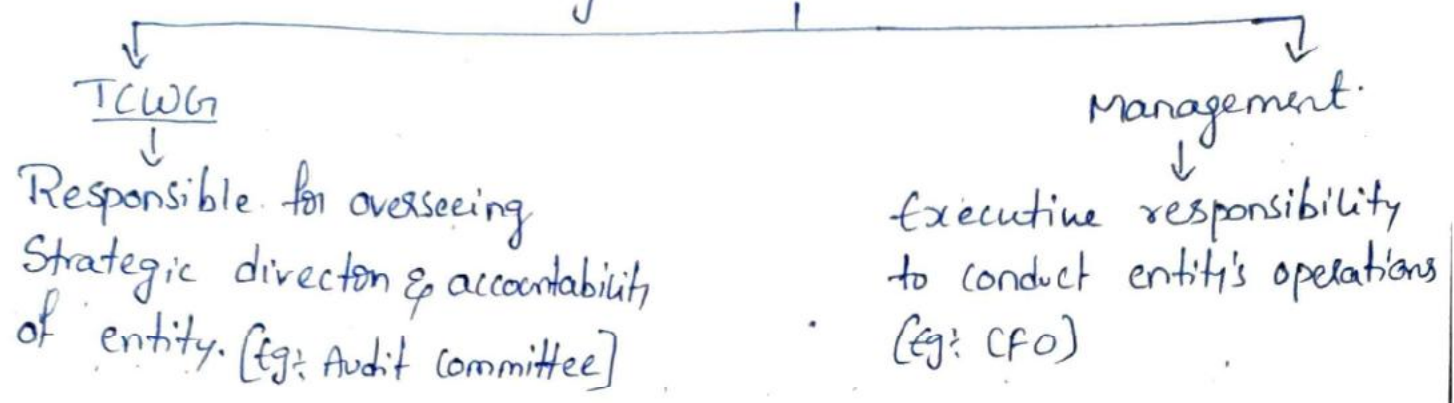 TCWG
Responsible for overseeing
Strategic directon & accountability
of entity. [Eg: Audit Committee]
Management.
Executive responsibility
to conduct entity's operations
(Eg: CFO)